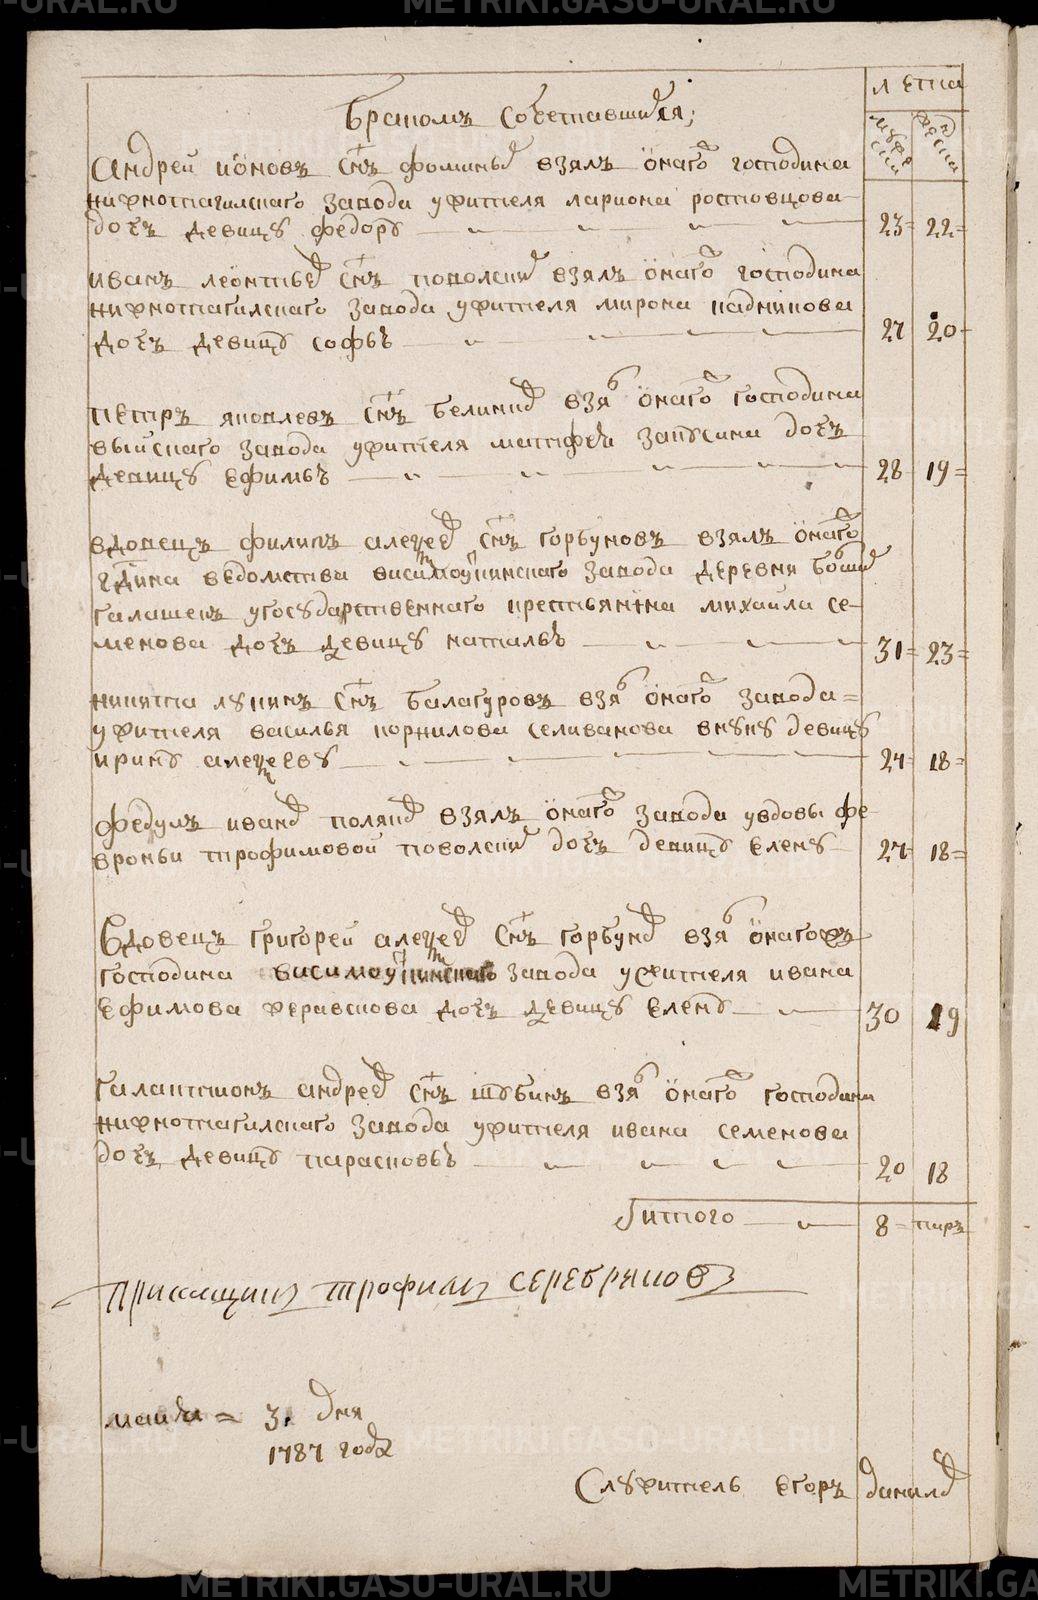 METRIKI.GASU-URAL.RU
Бракомъ Сочетавшияся;
лѣта
мужески
женска
Андрей ионовъ снъ фоминыхъ взялъ онагож господина
нижнотагилскаго завода ужителя лариона ростовцова
дочь девицу федору
23 = 22 =
иванъ леонтьевъ снъ поволских взялъ онагож господина
нижнотагилскаго завода ужителя мирона кадникова
дочь девицу софью
27 20
петръ яковлевъ снъ беликих взя онагож господина
выйскаго завода ужителя матфея запусина дочь
девицу ефимью
28 19 =
вдовецъ филипъ алеѯеевъ снъ горбуновъ взялъ онагож
гдина ведомства висимошукинскаго завода деревни большихъ
галашекъ угосударственнаго крестьянина михаила се-
менова дочь девицу наталью
31 = 23 =
никита лукинъ снъ балагуровъ взя онагож завода =
ужителя василья корнилова селиванова внуку девицу
ирину алеѯееву
24 = 18 =
федулъ ивановъ поляковъ взялъ онагож завода увдовы фе-
вроньи трофимовой поволских дочь девицу елену
27 18 =
Вдовецъ григорей алеѯеевъ снъ горбуновъ взя онагож
господина висимошукинскаго завода ужителя ивана
ефимова жеравлова дочь девицу елену
30 19
галактионъ андреевъ снъ шубинъ взя онагож господина
нижнотагилскаго завода ужителя ивана семенова
дочь девицу парасковью
20 18
итого 8 = паръ
прикащикъ трофимъ серебряковъ
майя = 3. дня
1787 года
Служитель егоръ даниловъ